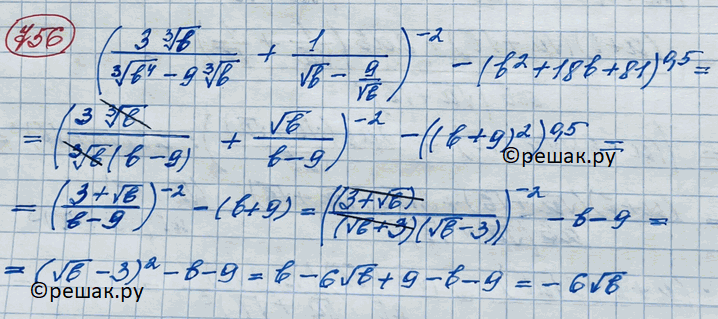 756 (3∛b / (∛b⁴ - 9∛b) + 1 / (√b - 9/√b))⁻² - (b² + 18b + 81)^0,5 =
= (3∛b / (∛b(b - 9)) + √b / (b - 9))⁻² - ((b + 9)²)^0,5 =
©решак.ру
= ((3 + √b) / (b - 9))⁻² - (b + 9) = ((3 + √b) / ((√b + 3)(√b - 3)))⁻² - b - 9 =
= (√b - 3)² - b - 9 = b - 6√b + 9 - b - 9 = - 6√b
©решак.ру